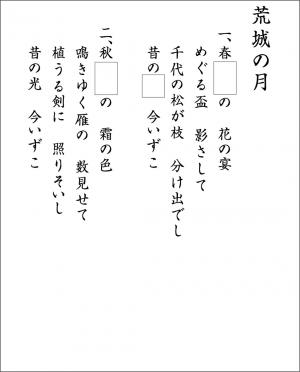 荒城の月
一、春□の 花の宴
めぐる盃 影さして
千代の松が枝 分け出でし
昔の□ 今いずこ
二、秋□の 霜の色
鳴きゆく雁の 数見せて
植うる剣に 照りそいし
昔の光 今いずこ